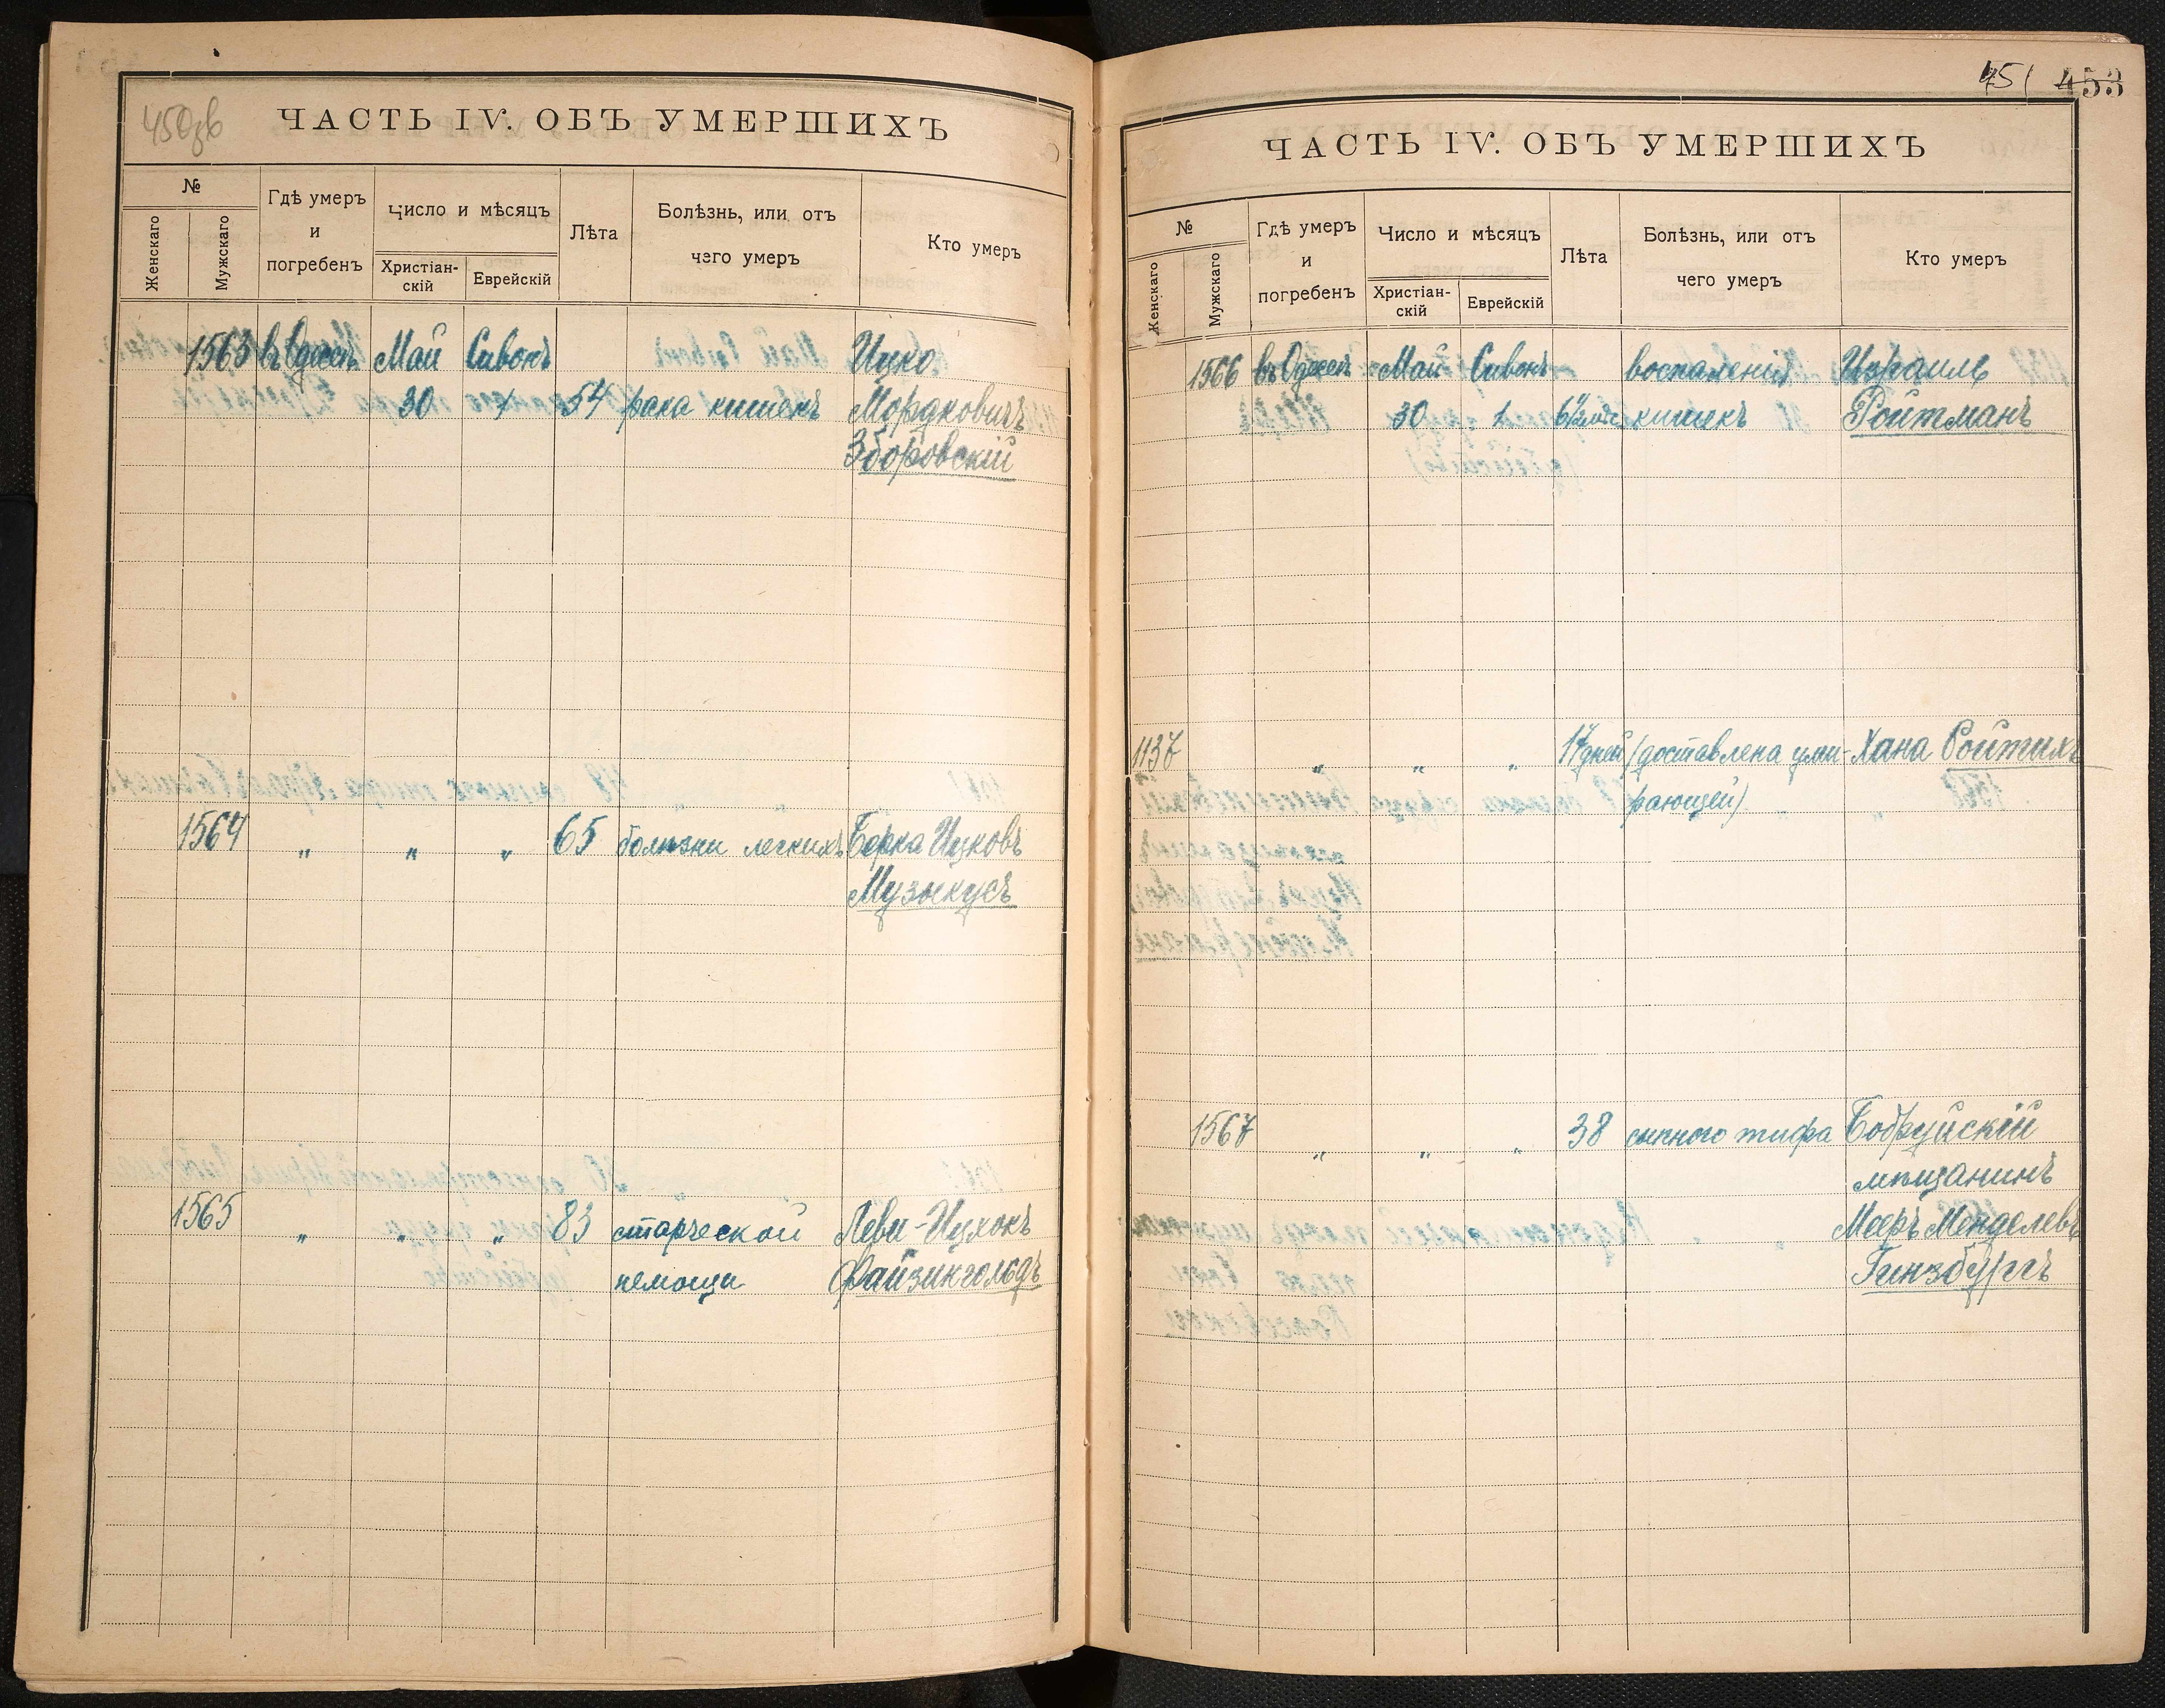 450зв
ЧАСТЬ IV. ОБЪ УМЕРШИХЪ
№
Женскаго
Мужскаго
Гдѣ умеръ
и
погребенъ
Число и мѣсяцъ
Христіан-
скій
Еврейскій
Лѣта
Болѣзнь, или отъ
чего умеръ
Кто умеръ
1563 въ Одессѣ Май Сивонъ Ицко
30 1 54 рака кишекъ Мордковичъ
Зборовскій
1564 " " " 65 болѣзни легкихъ Берка Ицковъ
Музыкусъ
1565 " " " 83 старческой Леви-Ицхокъ
немощи Файзингольдъ
451 453
ЧАСТЬ IV. ОБЪ УМЕРШИХЪ
№
Женскаго
Мужскаго
Гдѣ умеръ
и
погребенъ
Число и мѣсяцъ
Христіан-
скій
Еврейскій
Лѣта
Болѣзнь, или отъ
чего умеръ
Кто умеръ
1566 въ Одессѣ Май Сивонъ воспаленія Израиль
30 1 кишекъ Ройтманъ
1137 " " " 17 дней (доставлена уми- Хана Ройтихъ
рающей)
1567 " " " 38 сыпного тифа Бобруйскій
мѣщанинъ
Мееръ Менделевъ
Гинзбургъ